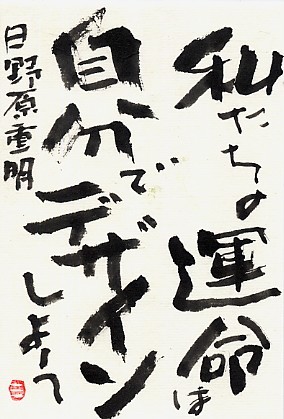 私たちの運命は
自分でデザインしよーて
日野原重明